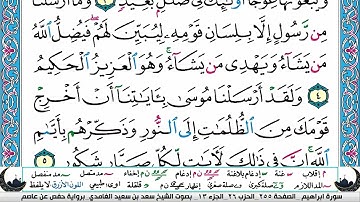 وَيَبْغُونَهَا عِوَجًا أُو۟لَٰٓئِكَ فِى ضَلَٰلٍۭ بَعِيدٍ ٣ وَمَآ أَرْسَلْنَا
مِن رَّسُولٍ إِلَّا بِلِسَانِ قَوْمِهِۦ لِيُبَيِّنَ لَهُمْ فَيُضِلُّ ٱللَّهُ
مَن يَشَآءُ وَيَهْدِى مَن يَشَآءُ وَهُوَ ٱلْعَزِيزُ ٱلْحَكِيمُ
٤ وَلَقَدْ أَرْسَلْنَا مُوسَىٰ بِـَٔايَٰتِنَآ أَنْ أَخْرِجْ
قَوْمَكَ مِنَ ٱلظُّلُمَٰتِ إِلَى ٱلنُّورِ وَذَكِّرْهُم بِأَيَّىٰمِ
ٱللَّهِ إِنَّ فِى ذَٰلِكَ لَءَايَٰتٍ لِّكُلِّ صَبَّارٍ شَكُورٍ ٥
سورة ابراهيم الصفحة ٢٥٥ الحزب ٢٦ الجزء ١٣ بصوت الشيخ سعد بن سعيد الغامدي برواية حفص عن عاصم